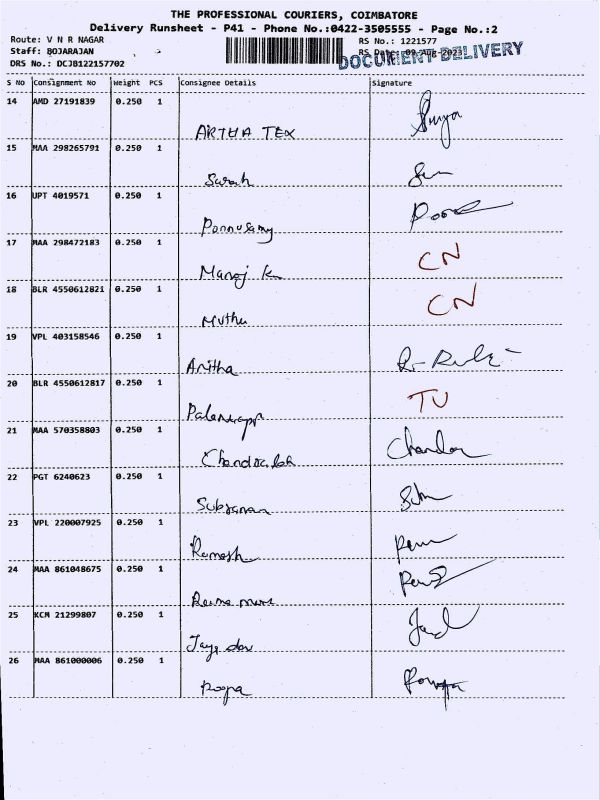 THE PROFESSIONAL COURIERS, COIMBATORE
Delivery Runsheet - P41 - Phone No.:0422-3505555 - Page No.:2
Route: V N R NAGAR RS No.: 1221577
Staff: BOJARAJAN RS Date: 09-Aug-2023
DOCUMENT DELIVERY
DRS No.: DCJB122157702
S No Consignment No Weight PCS Consignee Details Signature
14 AMD 27191839 0.250 1
ARTHA TEX
15 MAA 298265791 0.250 1
Sarah
16 UPT 4019571 0.250 1
Ponnusamy
17 MAA 298472183 0.250 1 CN
Manoj K
18 BLR 4550612821 0.250 1 CN
Muthu
19 VPL 403158546 0.250 1
Anitha
20 BLR 4550612817 0.250 1 TU
21 MAA 570358803 0.250 1 Chandar
22 PGT 6240623 0.250 1
23 VPL 220007925 0.250 1
Ramesh
24 MAA 861048675 0.250 1
25 KCM 21299807 0.250 1
26 MAA 861000006 0.250 1
Roopa